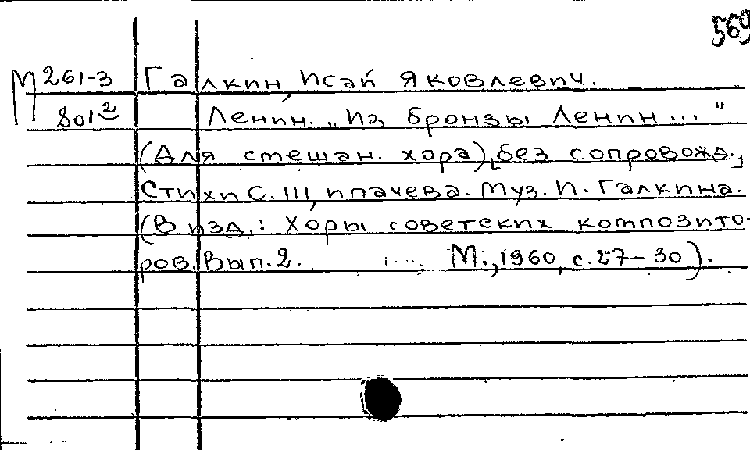 569
М 261-3 Галкин, Исай Яковлевич.
801² Ленин. „Из бронзы Ленин..."
(Для смешан. хора), без сопровожд.,
Стихи С. Шипачева. Муз. И. Галкина.
(В изд.: Хоры советских композито-
ров. Вып. 2. .... М., 1960, с. 27-30).